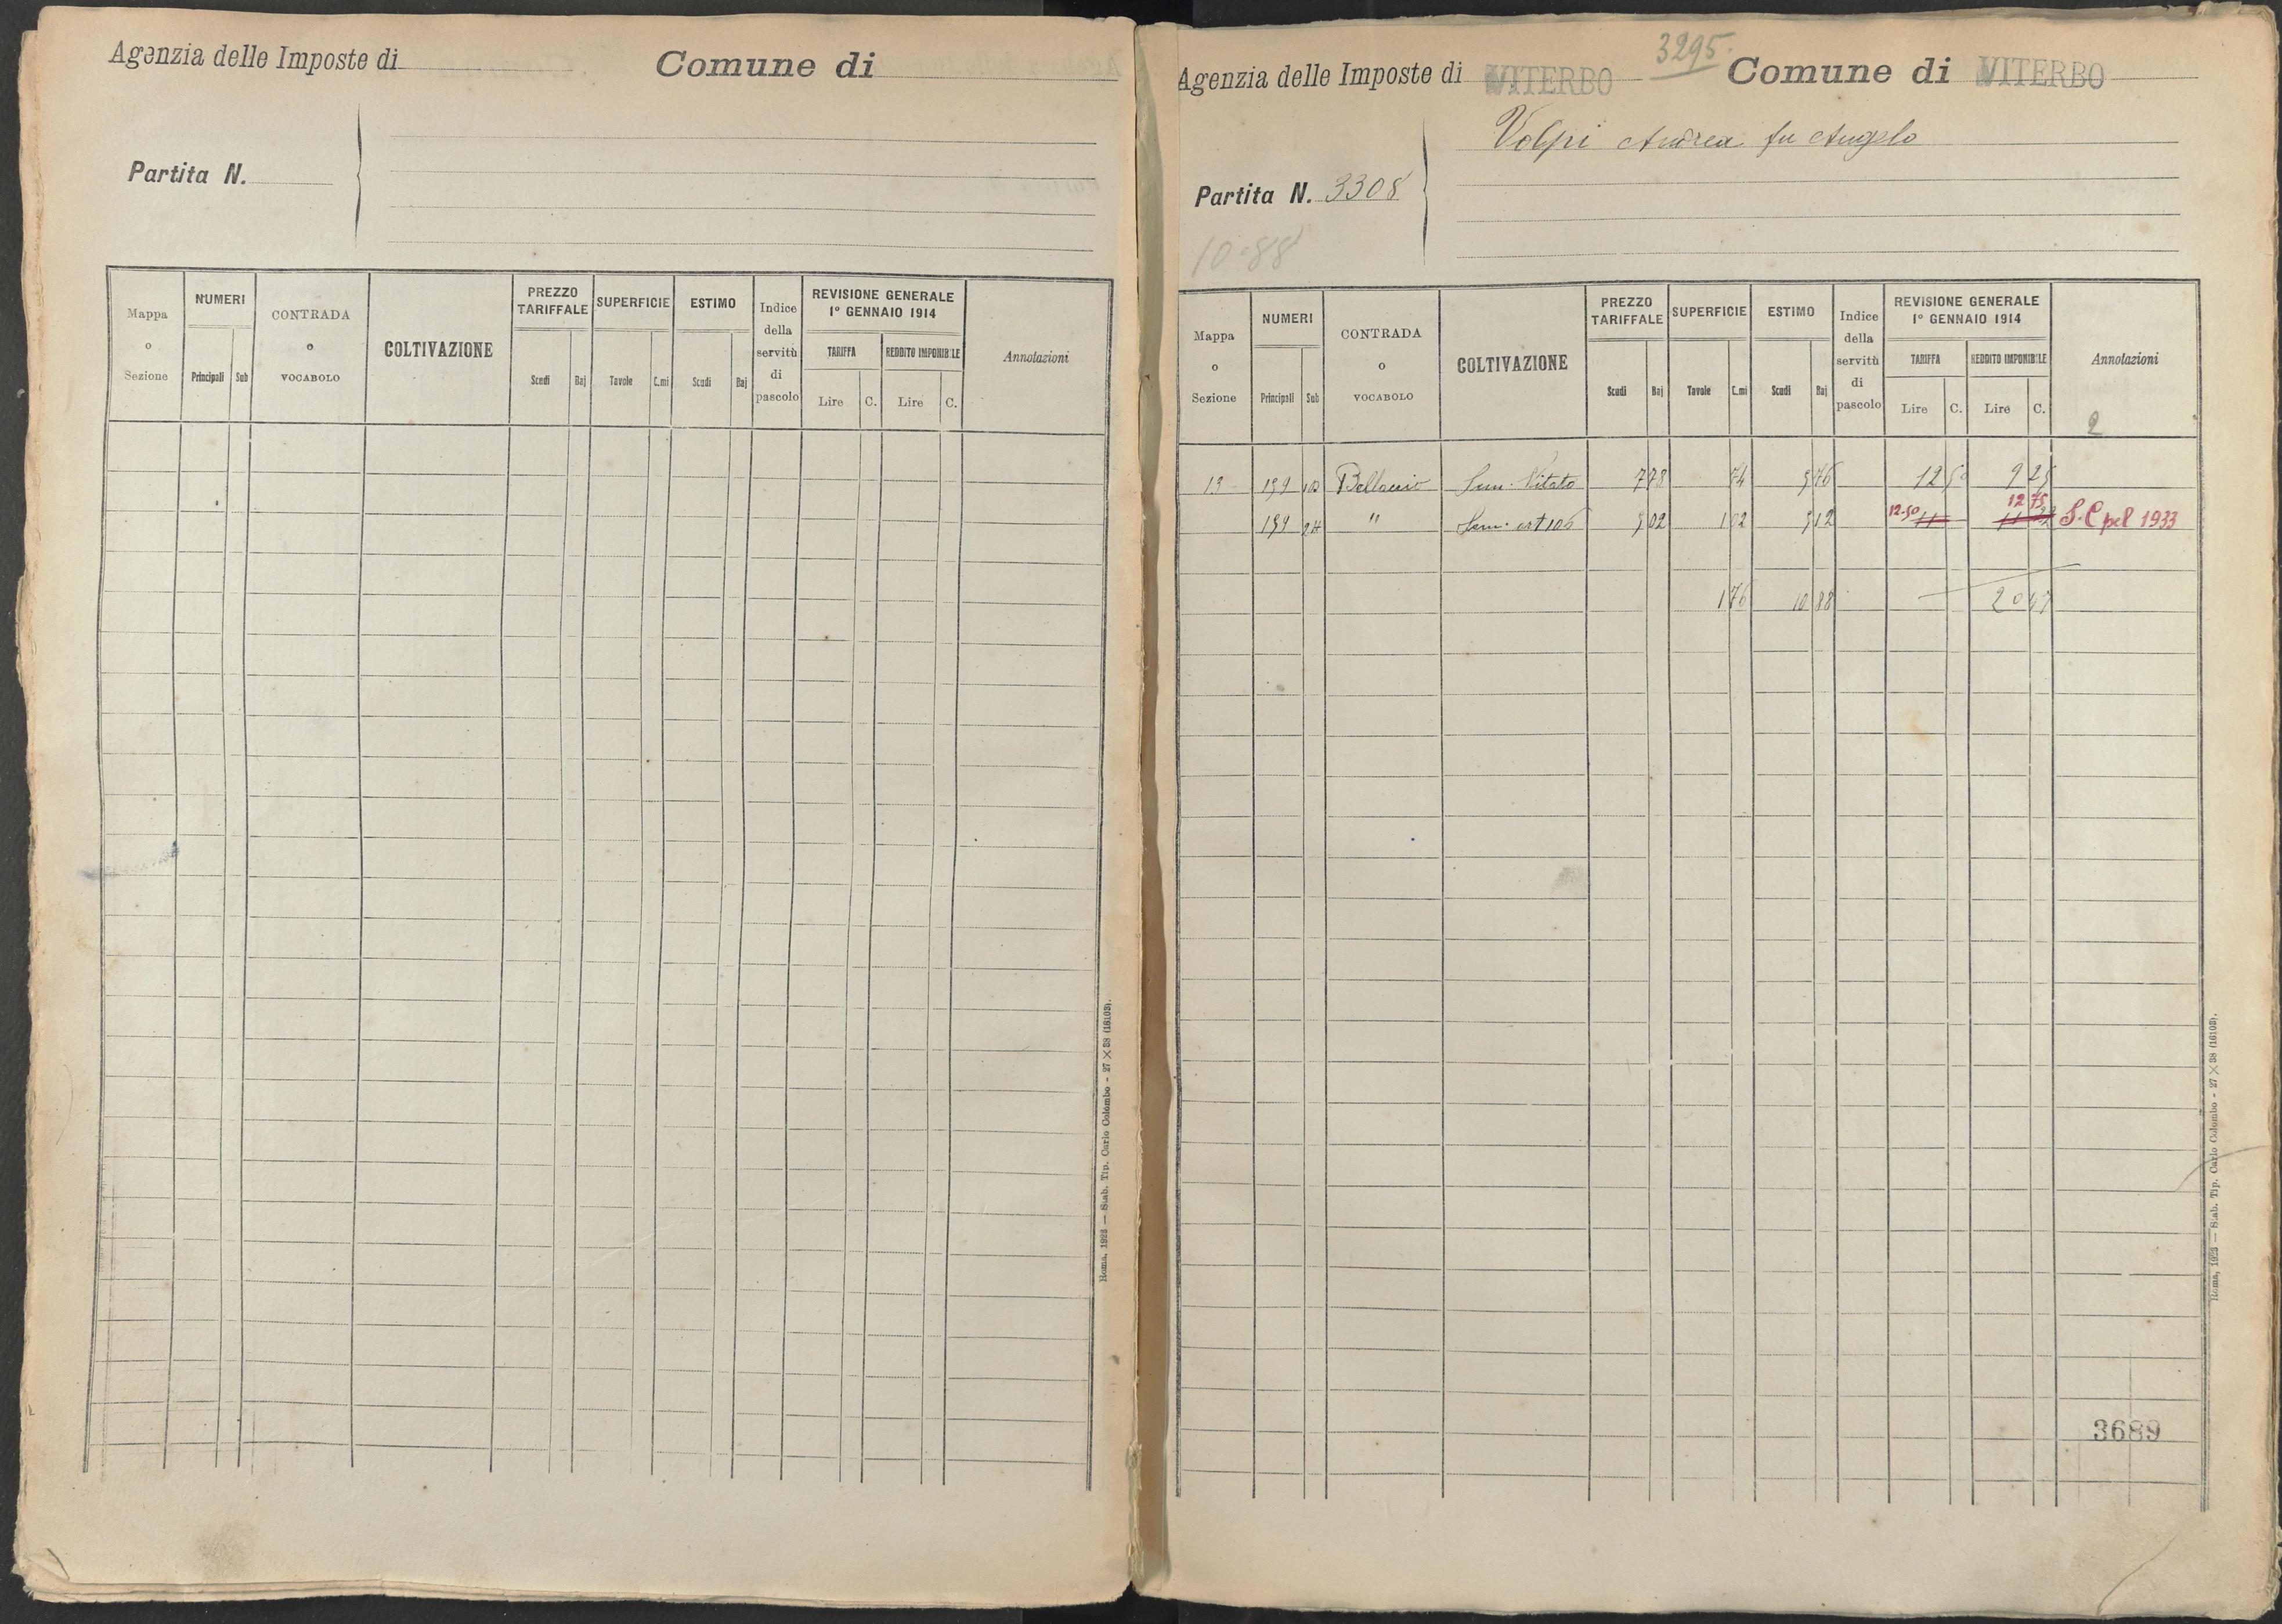 Agenzia delle Imposte di Comune di
Partita N.
Mappa o Sezione NUMERI Principali Sub CONTRADA o VOCABOLO COLTIVAZIONE PREZZO TARIFFALE Scudi Baj SUPERFICIE Tavole C.mi ESTIMO Scudi Baj Indice della servitù di pascolo REVISIONE GENERALE 1° GENNAIO 1914 TARIFFA Lire C. REDDITO IMPONIBILE Lire C. Annotazioni
Roma, 1923 — Stab. Tip. Carlo Colombo - 27 × 38 (16103).
3295.
Agenzia delle Imposte di VITERBO Comune di VITERBO
Volpi Andrea fu Angelo
Partita N. 3308
10-88
Mappa o Sezione NUMERI Principali Sub CONTRADA o VOCABOLO COLTIVAZIONE PREZZO TARIFFALE Scudi Baj SUPERFICIE Tavole C.mi ESTIMO Scudi Baj Indice della servitù di pascolo REVISIONE GENERALE 1° GENNAIO 1914 TARIFFA Lire C. REDDITO IMPONIBILE Lire C. Annotazioni
2
13 Sem. Vitato 7 78 74 5 76 12 50 9 25
12.50 12 75
" Sem. 5 02 1 02 5 12 11 11 22 1933
1 76 10 88 20 47
3689
Roma, 1923 — Stab. Tip. Carlo Colombo - 27 × 38 (16103).